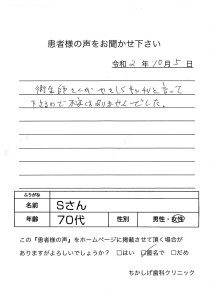 患者様の声をお聞かせ下さい
令和 2 年 10 月 5 日
衛生師さんがやさしくキッチリと言って
下さるので不安はありませんでした。
ふりがな
名前 Sさん
年齢 70代 性別 男性・女性
この『患者様の声』をホームページに掲載させて頂く場合が
ありますがよろしいでしょうか? □はい ☑匿名で □だめ
ちかしげ歯科クリニック